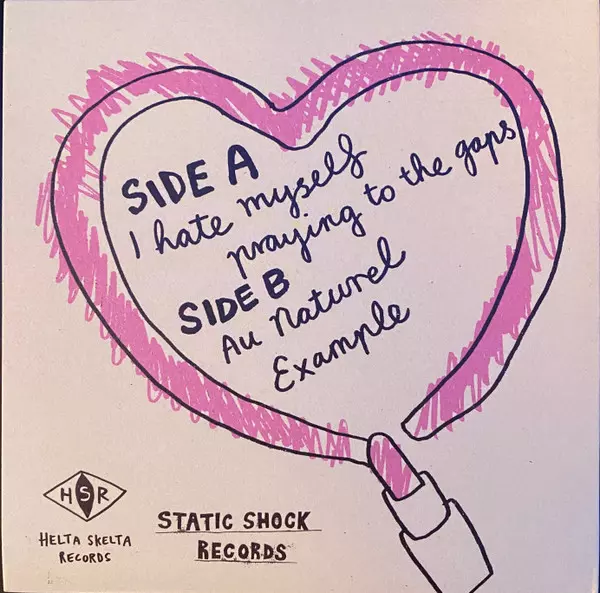 SIDE A
I hate myself
praying to the gaps
SIDE B
Au Naturel
Example
HSR
HELTA SKELTA
RECORDS
STATIC SHOCK
RECORDS